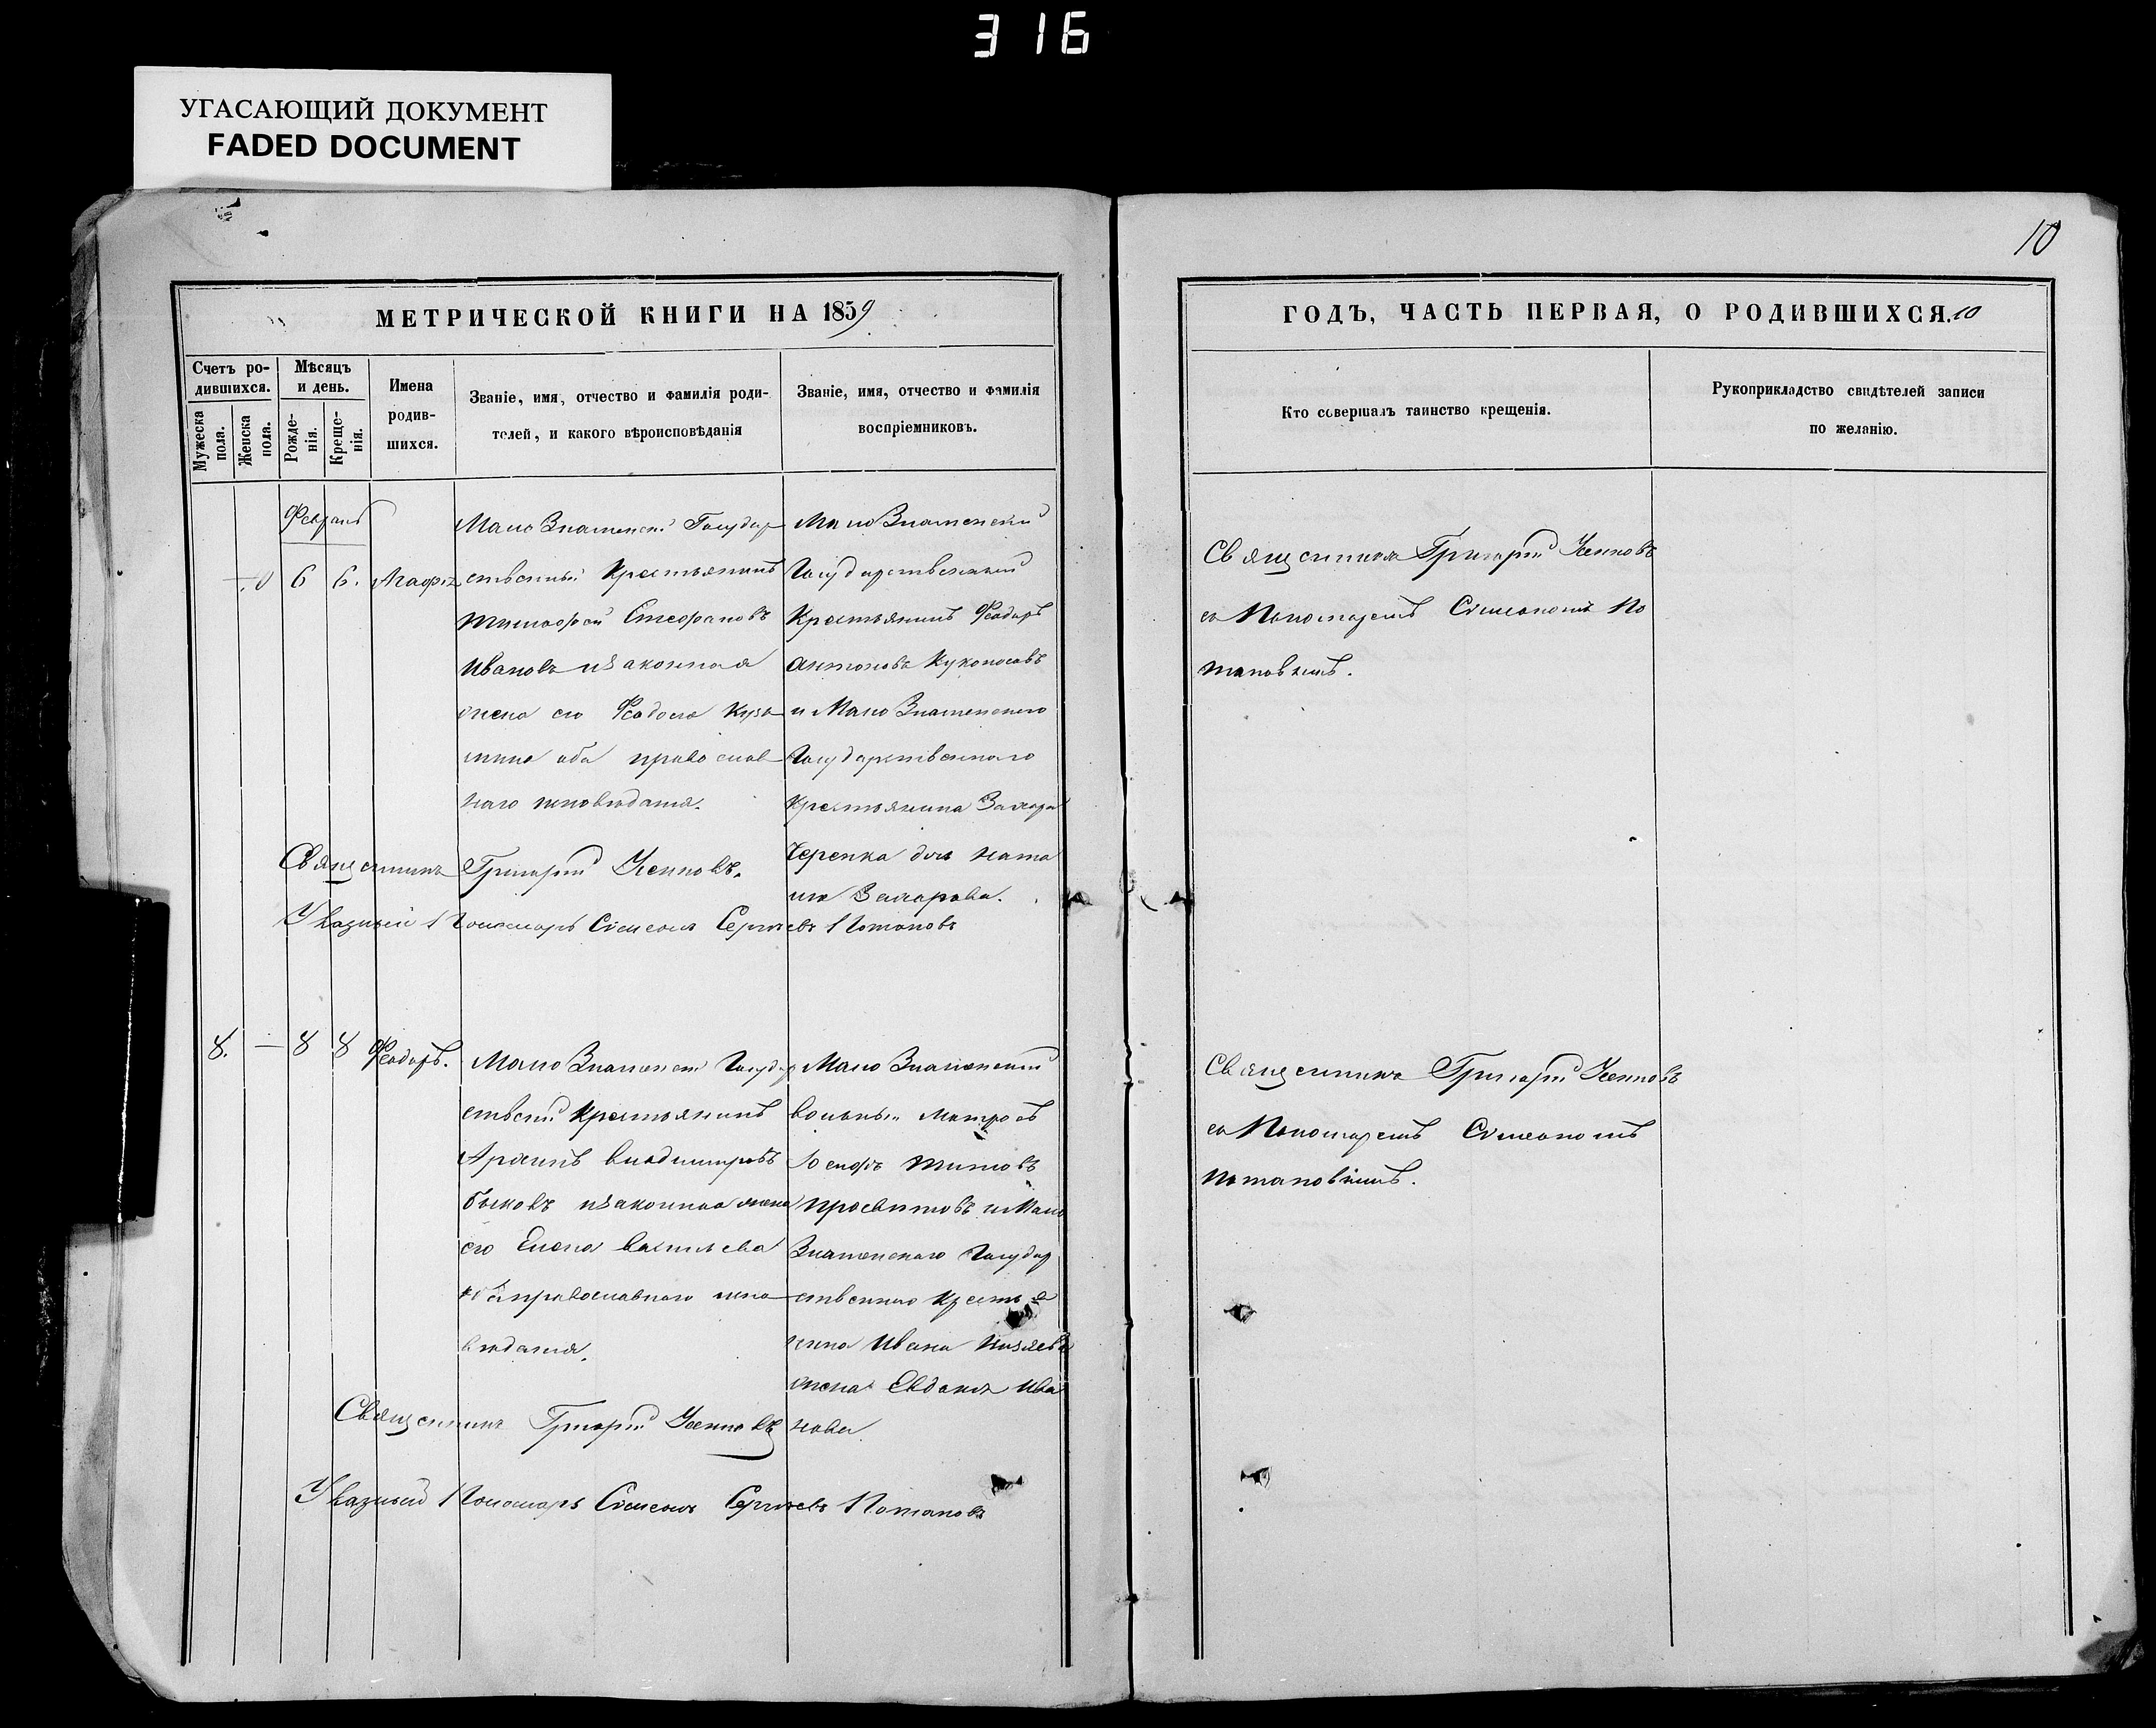 316
УГАСАЮЩИЙ ДОКУМЕНТ
FADED DOCUMENT
МЕТРИЧЕСКОЙ КНИГИ НА 1859
Счетъ ро-
дившихся.
Мужеска
пола.
Женска
пола.
Мѣсяцъ
и день.
Рожде-
нія.
Креще-
нія.
Имена
родив-
шихся.
Званіе, имя, отчество и фамилія роди-
телей, и какого вѣроисповѣданія
Званіе, имя, отчество и фамилія
воспріемниковъ.
6 6.
Мало Знаменскій Государ
ственный Крестьянинъ
Тимофей Стефановъ
Ивановъ и законная
жена его Феодосія Кузь
мина оба православ
наго исповѣданія.
Мало Знаменский
Государственный
Крестьянинъ Феодоръ
Антоновъ
и Мало Знаменского
Государственного
Крестьянина Захара
Черепка дочь Ната
лія Захарова.
Священникъ Григорій
Указный Пономарь Сімеонъ Сергіевъ Потаповъ
8. — 8 8 Феодоръ.
Мало Знаменскій Государ
ственный Крестьянинъ
Архипъ Владимировъ
Быковъ и законная жена
его Елена Васильева
оба православного испо
вѣданія.
Мало Знаменский
вольный Матросъ
Іосифъ Титовъ
и Мало
Знаменского Государ
ственного Крестья
нина Ивана
жена Евдокія Ива
нова
Священникъ Григорій
Указный Пономарь Сімеонъ Сергіевъ Потаповъ
10
ГОДЪ, ЧАСТЬ ПЕРВАЯ, О РОДИВШИХСЯ. 10
Кто совершалъ таинство крещенія.
Рукоприкладство свидѣтелей записи
по желанію.
Священникъ Григорій
съ Пономаремъ Сімеономъ По
таповымъ.
Священникъ Григорій
съ Пономаремъ Сімеономъ
Потаповымъ.